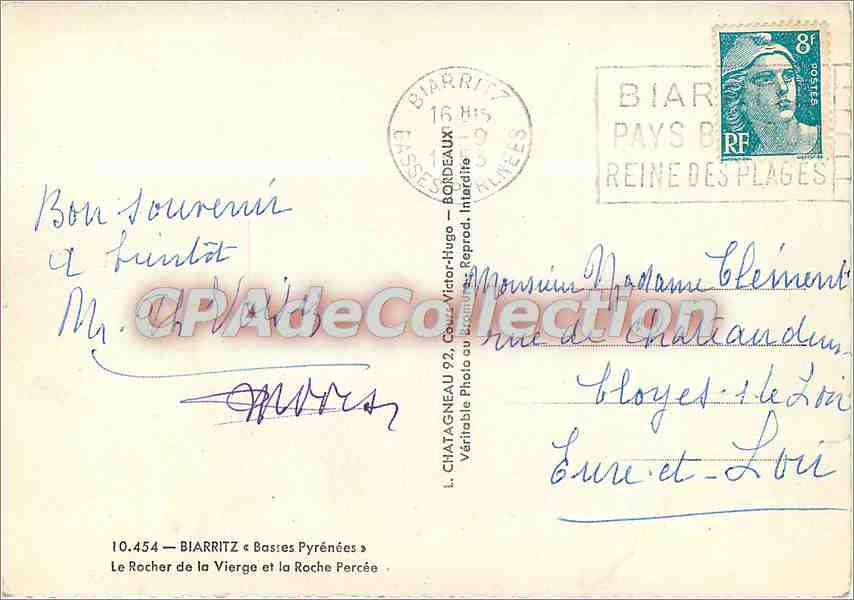 8f
POSTES
RF
BIARRITZ
16 Hs
-9
BASSES PYRENEES
BIAR
PAYS B
REINE DES PLAGES
Bon souvenir
a bientôt
Mr.
Monsieur Madame Clément
rue de Chateaudun
Cloyes s le Loir
Eure-et-Loir
L. CHATAGNEAU 92, Cours Victor-Hugo — BORDEAUX
Véritable Photo au Bromure - Reprod. Interdite
CPAdeCollection
10.454 — BIARRITZ « Basses Pyrénées »
Le Rocher de la Vierge et la Roche Percée